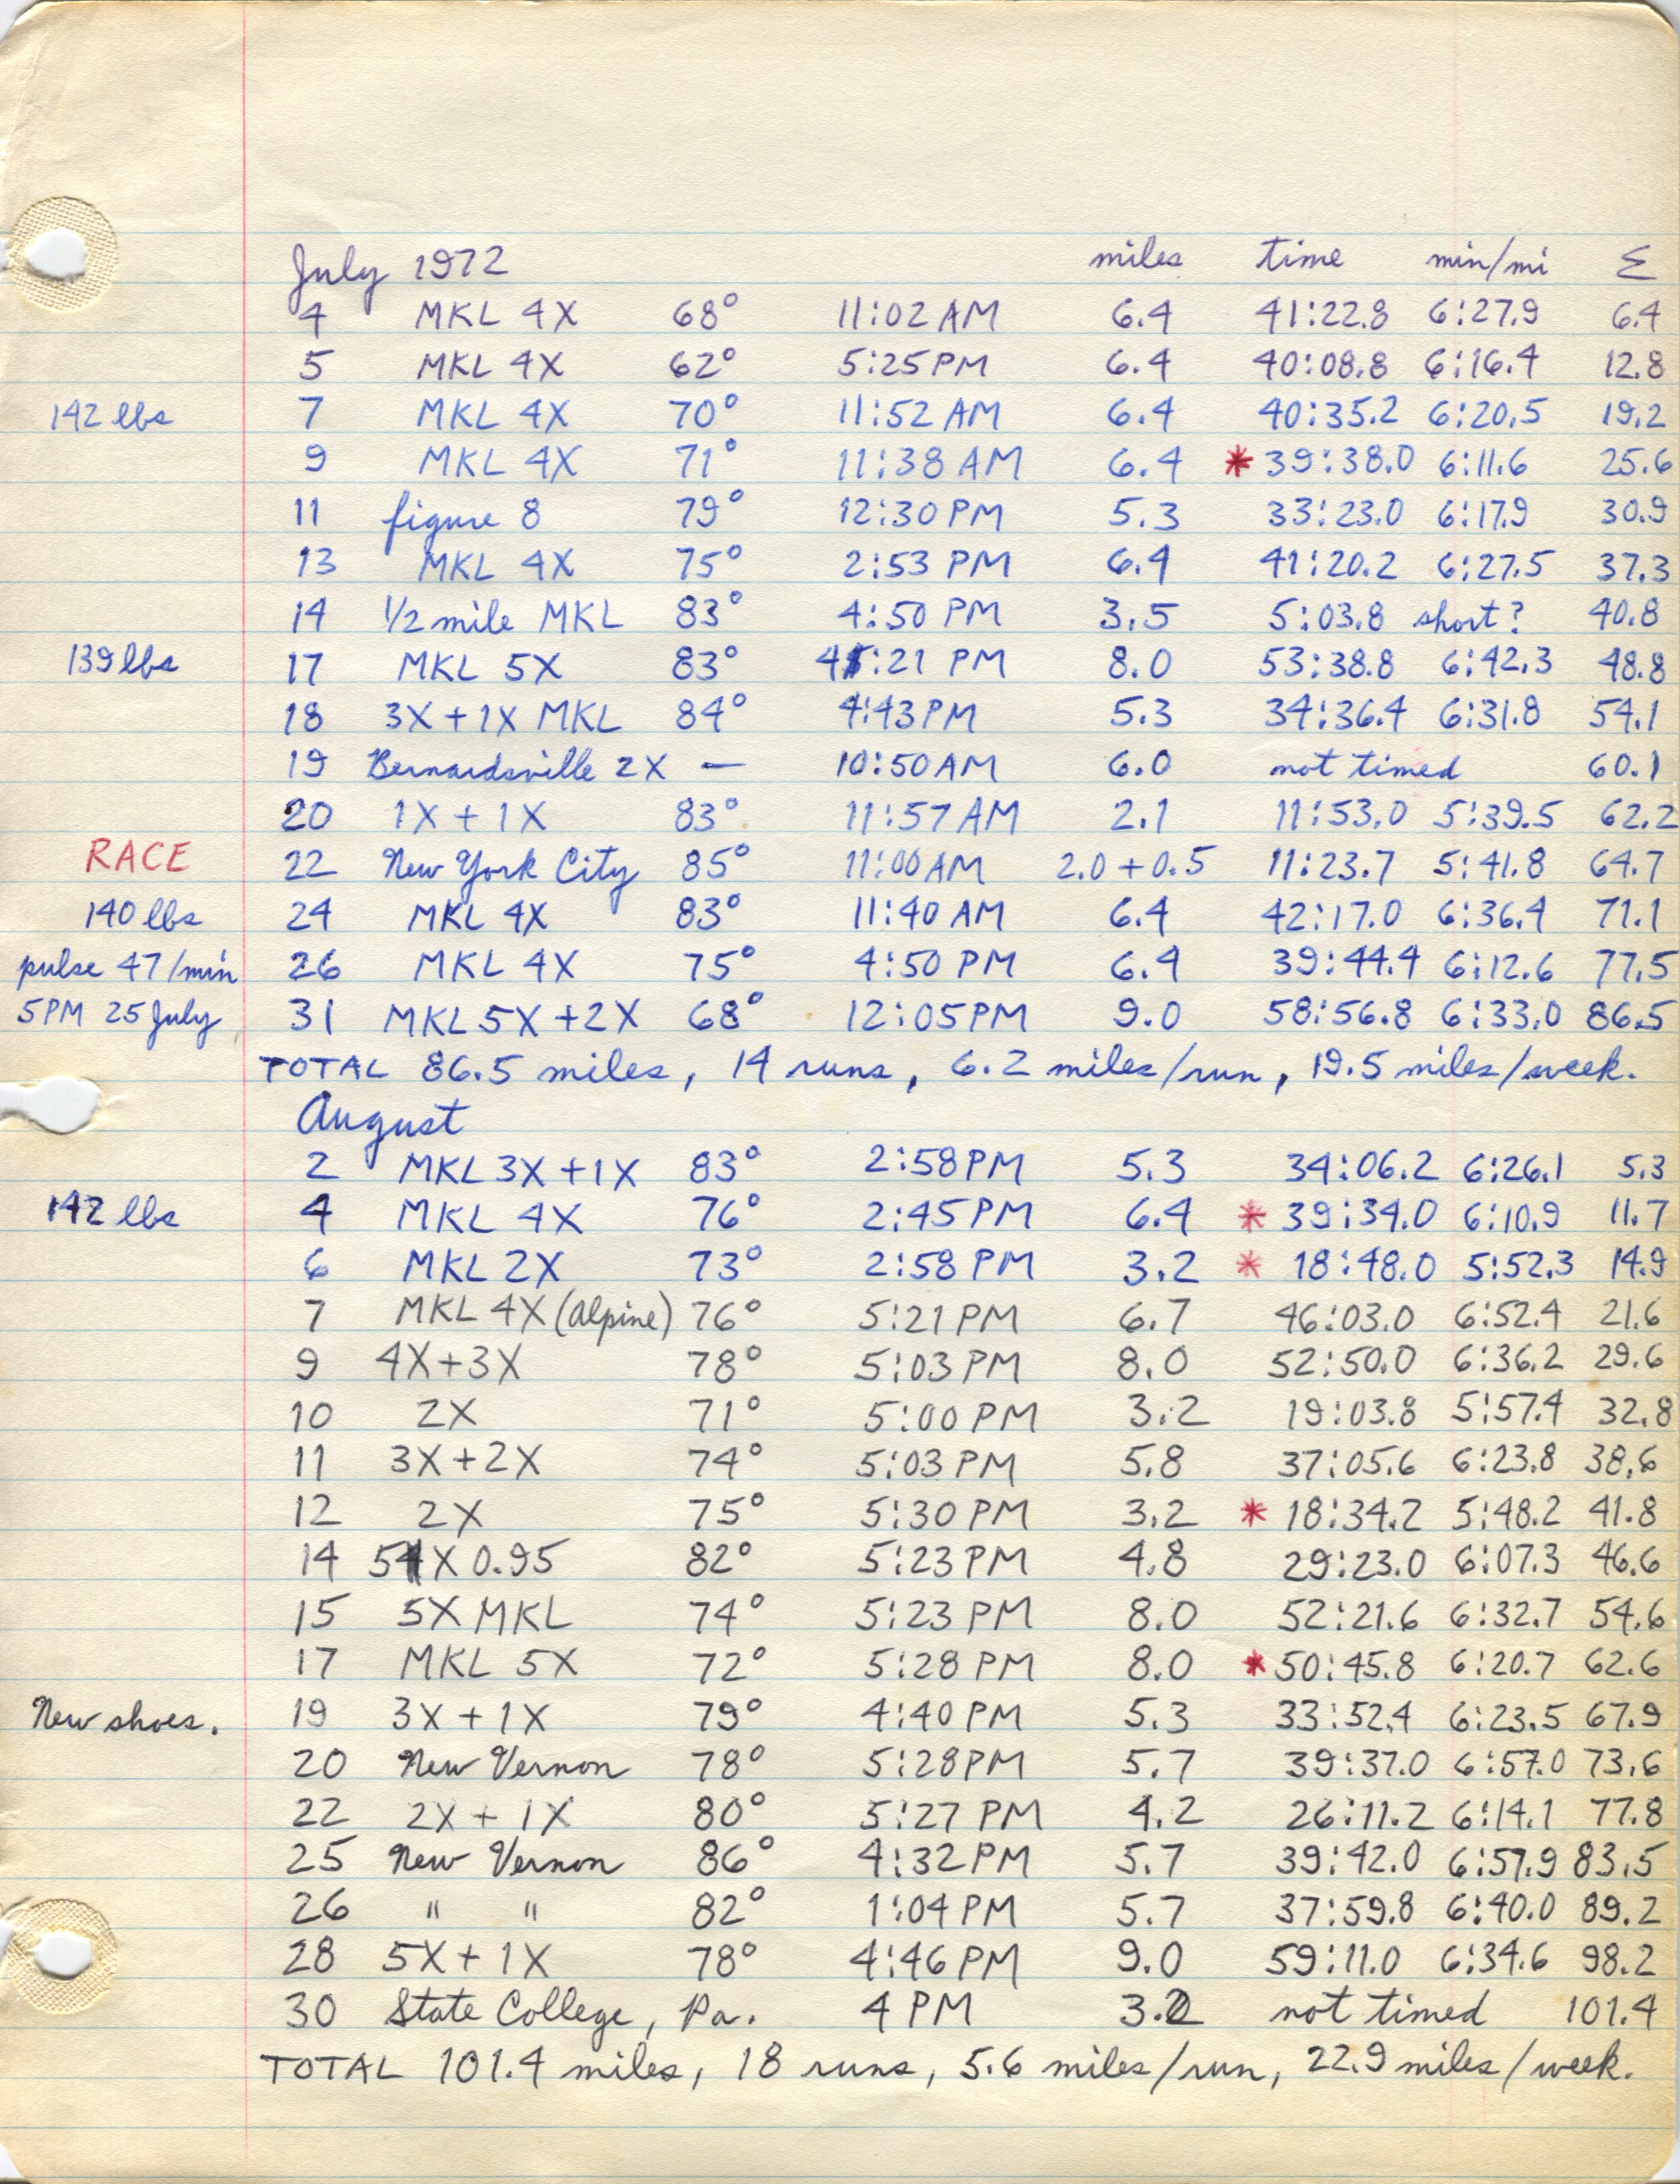 July 1972 miles time min/mi Σ
4 MKL 4X 68° 11:02 AM 6.4 41:22.8 6:27.9 6.4
5 MKL 4X 62° 5:25 PM 6.4 40:08.8 6:16.4 12.8
142 lbs 7 MKL 4X 70° 11:52 AM 6.4 40:35.2 6:20.5 19.2
9 MKL 4X 71° 11:38 AM 6.4 * 39:38.0 6:11.6 25.6
11 figure 8 79° 12:30 PM 5.3 33:23.0 6:17.9 30.9
13 MKL 4X 75° 2:53 PM 6.4 41:20.2 6:27.5 37.3
14 1/2 mile MKL 83° 4:50 PM 3.5 5:03.8 short? 40.8
139 lbs 17 MKL 5X 83° 4:21 PM 8.0 53:38.8 6:42.3 48.8
18 3X + 1X MKL 84° 4:43 PM 5.3 34:36.4 6:31.8 54.1
19 Bernardsville 2X — 10:50 AM 6.0 not timed 60.1
20 1X + 1X 83° 11:57 AM 2.1 11:53.0 5:39.5 62.2
RACE 22 New York City 85° 11:00 AM 2.0 + 0.5 11:23.7 5:41.8 64.7
140 lbs 24 MKL 4X 83° 11:40 AM 6.4 42:17.0 6:36.4 71.1
pulse 47/min 26 MKL 4X 75° 4:50 PM 6.4 39:44.4 6:12.6 77.5
5PM 25 July 31 MKL 5X + 2X 68° 12:05 PM 9.0 58:56.8 6:33.0 86.5
TOTAL 86.5 miles, 14 runs, 6.2 miles/run, 19.5 miles/week.
August
2 MKL 3X + 1X 83° 2:58 PM 5.3 34:06.2 6:26.1 5.3
142 lbs 4 MKL 4X 76° 2:45 PM 6.4 * 39:34.0 6:10.9 11.7
6 MKL 2X 73° 2:58 PM 3.2 * 18:48.0 5:52.3 14.9
7 MKL 4X (alpine) 76° 5:21 PM 6.7 46:03.0 6:52.4 21.6
9 4X + 3X 78° 5:03 PM 8.0 52:50.0 6:36.2 29.6
10 2X 71° 5:00 PM 3.2 19:03.8 5:57.4 32.8
11 3X + 2X 74° 5:03 PM 5.8 37:05.6 6:23.8 38.6
12 2X 75° 5:30 PM 3.2 * 18:34.2 5:48.2 41.8
14 5X 0.95 82° 5:23 PM 4.8 29:23.0 6:07.3 46.6
15 5X MKL 74° 5:23 PM 8.0 52:21.6 6:32.7 54.6
17 MKL 5X 72° 5:28 PM 8.0 * 50:45.8 6:20.7 62.6
New shoes. 19 3X + 1X 79° 4:40 PM 5.3 33:52.4 6:23.5 67.9
20 New Vernon 78° 5:28 PM 5.7 39:37.0 6:57.0 73.6
22 2X + 1X 80° 5:27 PM 4.2 26:11.2 6:14.1 77.8
25 New Vernon 86° 4:32 PM 5.7 39:42.0 6:57.9 83.5
26 " " 82° 1:04 PM 5.7 37:59.8 6:40.0 89.2
28 5X + 1X 78° 4:46 PM 9.0 59:11.0 6:34.6 98.2
30 State College, Pa. 4 PM 3.2 not timed 101.4
TOTAL 101.4 miles, 18 runs, 5.6 miles/run, 22.9 miles/week.